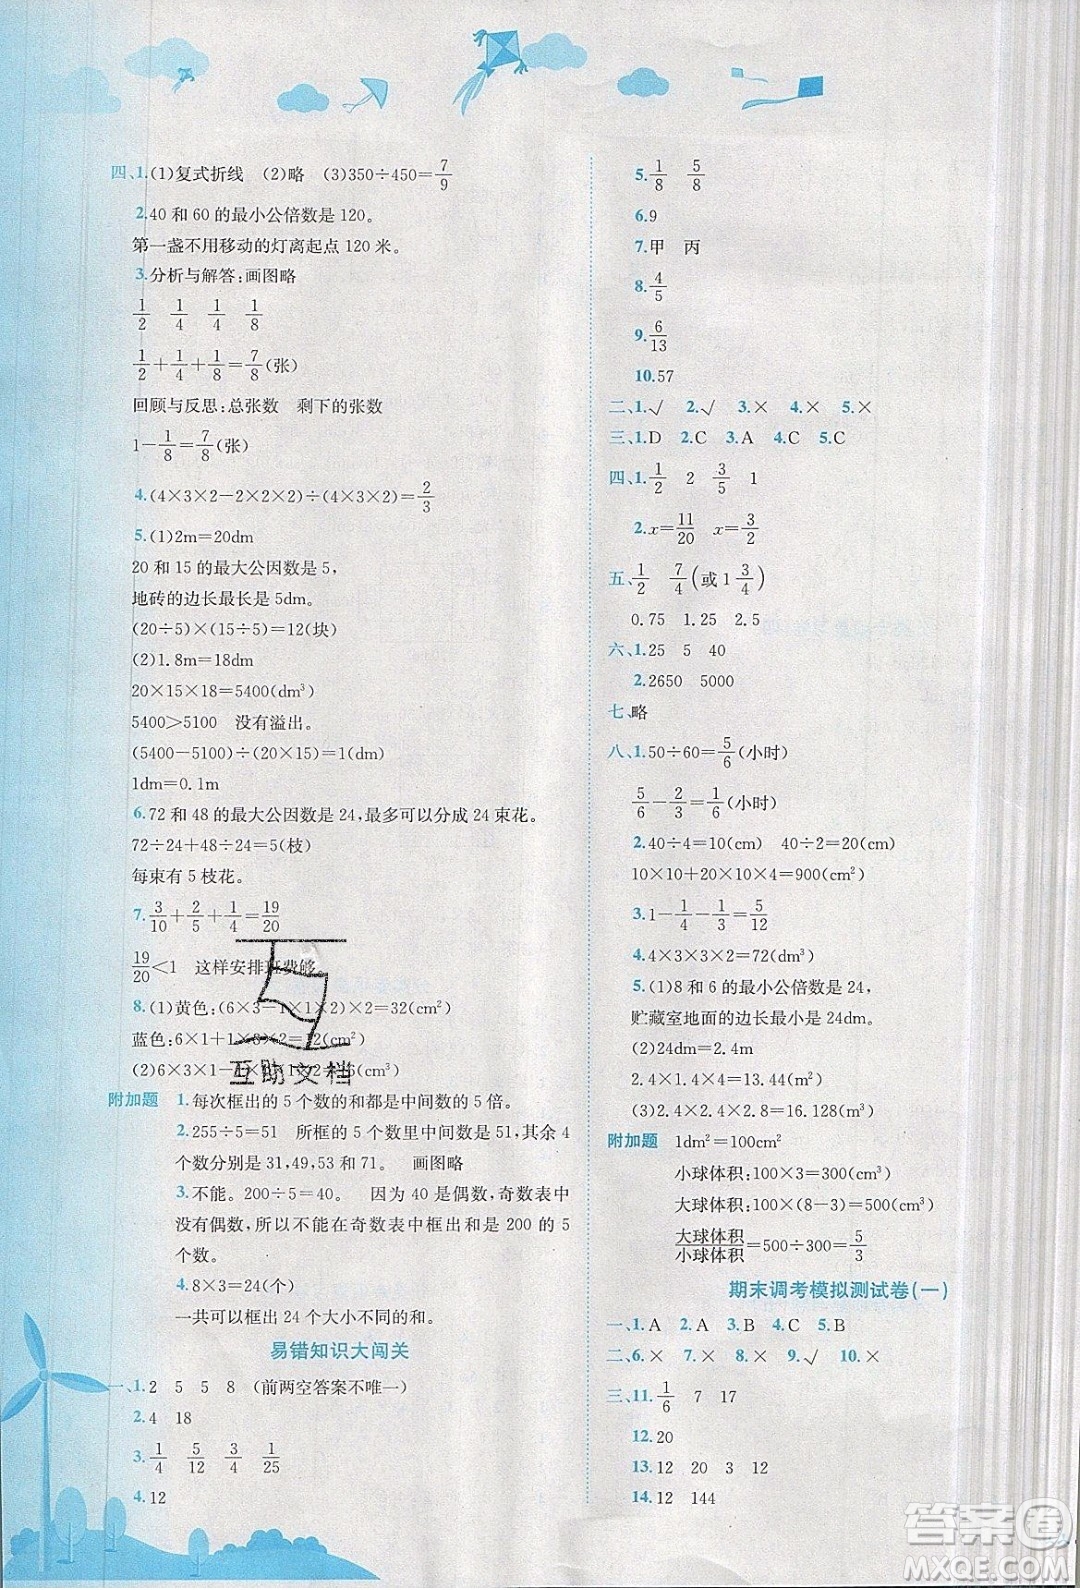 四、1.(1)复式折线　(2)略　(3)350÷450=7/9
2.40 和 60 的最小公倍数是 120。
第一盏不用移动的灯离起点 120 米。
3.分析与解答:画图略
1/2　1/4　1/4　1/8
1/2+1/4+1/8=7/8(张)
回顾与反思:总张数　剩下的张数
1-1/8=7/8(张)
4.(4×3×2-2×2×2)÷(4×3×3)=2/3
5.(1)2m=20dm
20 和 15 的最大公因数是 5,
地砖的边长最长是 5dm。
(20÷5)×(15÷5)=12(块)
(2)1.8m=18dm
20×15×18=5400(dm³)
5400>5100　没有溢出。
(5400-5100)÷(20×15)=1(dm)
1dm=0.1m
6.72 和 48 的最大公因数是 24,最多可以分成 24 束花。
72÷24+48÷24=5(枝)
每束有 5 枝花。
7.3/10+2/5+1/4=19/20
19/20<1　这样安排班费够。
8.(1)黄色:(6×3-1×1×2)×2=32(cm²)
蓝色:(6×1+1×
(2)6×3×1-
附加题　1.每次框出的 5 个数的和都是中间数的 5 倍。
2.255÷5=51　所框的 5 个数里中间数是 51,其余 4
个数分别是 31,49,53 和 71。　画图略
3.不能。200÷5=40。　因为 40 是偶数,奇数表中
没有偶数,所以不能在奇数表中框出和是 200 的 5
个数。
4.8×3=24(个)
一共可以框出 24 个大小不同的和。
易错知识大闯关
一、1.2　5　5　8　(前两空答案不唯一)
2.4　18
3.1/4　5/12　3/4　1/25
4.12
5.1/8　5/8
6.9
7.甲　丙
8.4/5
9.6/13
10.57
二、1.√　2.√　3.×　4.×　5.×
三、1.D　2.C　3.A　4.C　5.C
四、1.1/2　2　3/5　1
2.x=11/20　x=3/2
五、1/2　7/4(或 1 3/4)
0.75　1.25　2.5
六、1.25　5　40
2.2650　5000
七、略
八、1.50÷60=5/6(小时)
5/6-2/3=1/6(小时)
2.40÷4=10(cm)　40÷2=20(cm)
10×10+20×40=900(cm²)
3.1-1/4-1/3=5/12
4.4×3×3×2=72(dm³)
5.(1)8 和 6 的最小公倍数是 24,
贮藏室地面的边长最小是 24dm。
(2)24dm=2.4m
2.4×2.4×1.8÷
(3)2.4×2.4×2.8=16.128(m³)
附加题　1dm²=100cm²
小球体积:100×3=300(cm³)
大球体积:100×(8-3)=500(cm³)
大球体积/小球体积=500÷300=5/3
期末调考模拟测试卷(一)
一、1.A　2.A　3.B　4.C　5.B
二、6.×　7.×　8.×　9.√　10.×
三、11.1/6　7　17
12.20
13.12　20　3　12
14.12　144
互助文档
答案卷
MXQE.COM